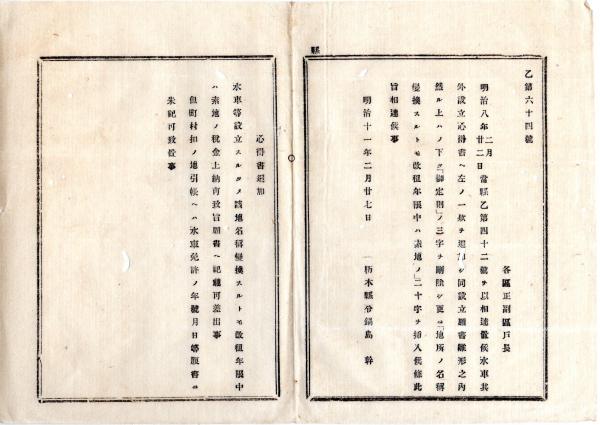 縣
乙第六十四號
各區正副區戶長
明治八年二月廿二日當縣乙第四十二號ヲ以相達置候水車其
外設立心得書ヘ左ノ一款ヲ追加シ同設立願書雛形之內
然ル上ハノ下タ「御定則」ノ三字ヲ刪除シ更ニ「地所ノ名稱
變換スルトモ改租年限中ハ素地ノ」二十字ヲ揷入候條此
旨相達候事
明治十一年二月廿七日
栃木縣令鍋島幹
心得書追加
水車等設立スルタメ該地名稱變換スルトモ改租年限中
ハ素地ノ稅金上納可致旨願書ヘ記載可差出事
但町村扣ノ地引帳ヘハ水車免許ノ年號月日等題書ニ
朱記可致置事